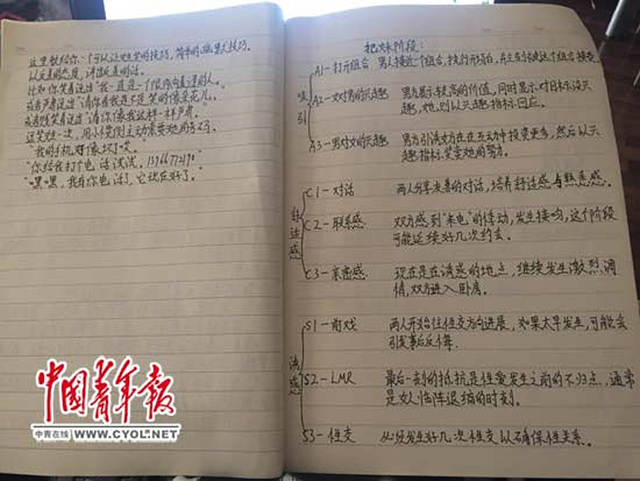 这里教给你一个可以让女生笑的技巧，简单的幽默大技巧。
以反差的态度，讲出反差的话。
比如你笑着说过"我一直是一个很内向羞涩的人。
或者严肃说过"请你看我是不是笑的像朵花儿。
或者随笑着说过"请你像我这样一样严肃。
逗笑她一次，用小惯例主动索要她的号码
"我的手机好像坏了哎。
"你给我打个电话试试，
"嘿嘿，我有你电话了，它现在好了。
把妹阶段：
吸引
A1-打开组合 男人接近一个组合，执行开场白，并立刻被这个组合接受
A2-女对男的兴趣 男方展示较高的价值，同时显示对目标没兴
趣，她则以兴趣指标回应。
A3-男对女的兴趣 男方引诱女方在在互动中投资更多，然后以兴
趣指标，奖赏她的努力。
舒适感
C1-对话 两人分享友善的对话，培养舒适感与熟悉感。
C2-联系感 双方感到"来电"的悸动，发生接吻，这个阶段
可能延续好几次约会。
C3-亲密感 现在是在诱惑的地点，继续发生激烈调
情，双方进入卧房。
诱惑
S1-前戏 两人开始往性交方向进展，如果太早发生，可能会
引发事后反悔
S2-LMR 最后一刻的抵抗是性爱发生之前的不归点，通常
是女人临阵退缩的时刻。
S3-性交 必须发生好几次性交以确保性关系。
中国青年报
中青在线 WWW.CYOL.NET